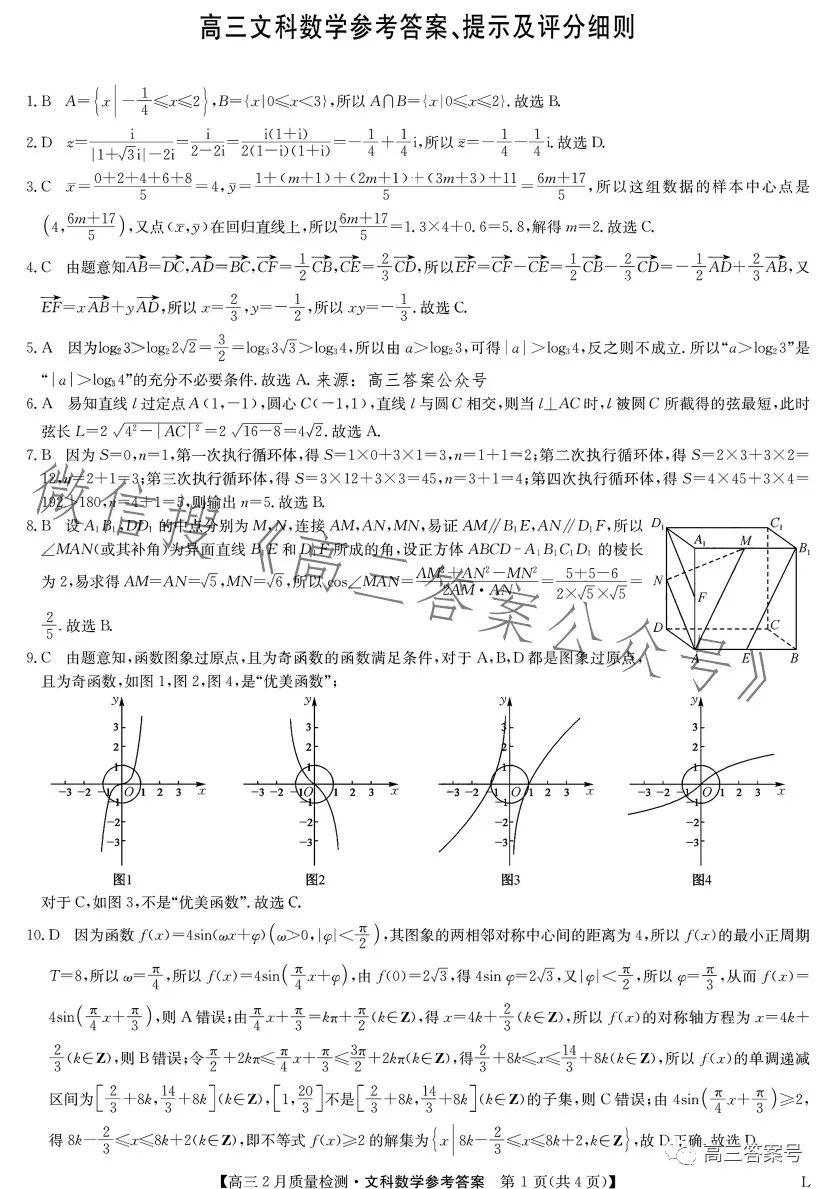 高三文科数学参考答案、提示及评分细则
1. B A={x|-1/4≤x≤2},B={x|0≤x<3},所以 A∩B={x|0≤x≤2}.故选 B.
2. D z=i/(|1+√3i|-2i)=i/(2-2i)=i(1+i)/(2(1-i)(1+i))=-1/4+1/4i,所以z̄=-1/4-1/4i.故选 D.
3. C x̄=(0+2+4+6+8)/5=4,ȳ=(1+(m+1)+(2m+1)+(3m+3)+11)/5=(6m+17)/5,所以这组数据的样本中心点是
(4,(6m+17)/5),又点(x̄,ȳ)在回归直线上,所以(6m+17)/5=1.3×4+0.6=5.8,解得 m=2.故选 C.
4. C 由题意知AB→=DC→,AD→=BC→,CF→=1/2CB→,CE→=2/3CD→,所以EF→=CF→-CE→=1/2CB→-2/3CD→=-1/2AD→+2/3AB→,又
EF→=xAB→+yAD→,所以 x=2/3,y=-1/2,所以 xy=-1/3.故选 C.
5. A 因为log₂3>log₂2√2=3/2=log₃3√3>log₃4,所以由 a>log₂3,可得|a|>log₃4,反之则不成立.所以“a>log₂3”是
“|a|>log₃4”的充分不必要条件.故选 A. 来源：高三答案公众号
6. A 易知直线 l 过定点 A(1,-1),圆心 C(-1,1),直线 l 与圆 C 相交,则当 l⊥AC 时,l 被圆 C 所截得的弦最短,此时
弦长 L=2√(4²-|AC|²)=2√(16-8)=4√2.故选 A.
7. B 因为 S=0,n=1,第一次执行循环体,得 S=1×0+3×1=3,n=1+1=2;第二次执行循环体,得 S=2×3+3×2=
12,n=2+1=3;第三次执行循环体,得 S=3×12+3×3=45,n=3+1=4;第四次执行循环体,得 S=4×45+3×4=
192>180,n=4+1=5,则输出 n=5.故选 B.
8. B 设 A₁B₁,DD₁ 的中点分别为 M,N,连接 AM,AN,MN,易证 AM∥B₁E,AN∥D₁F,所以
∠MAN(或其补角)为异面直线 B₁E 和 D₁F 所成的角,设正方体 ABCD-A₁B₁C₁D₁ 的棱长
为 2,易求得 AM=AN=√5,MN=√6,所以 cos∠MAN=(AM²+AN²-MN²)/(2AM·AN)=(5+5-6)/(2×√5×√5)=
2/5.故选 B.
D₁ C₁
A₁ M B₁
N F
D C
A E B
9. C 由题意知,函数图象过原点,且为奇函数的函数满足条件,对于 A,B,D 都是图象过原点,
且为奇函数,如图 1,图 2,图 4,是“优美函数”;
y 3 2 1 -3 -2 -1 O 1 2 3 x -1 -2 -3
y 3 2 1 -3 -2 -1 O 1 2 3 x -1 -2 -3
y 3 2 1 -3 -2 -1 O 1 2 3 x -1 -2 -3
y 3 2 1 -3 -2 -1 O 1 2 3 x -1 -2 -3
图1 图2 图3 图4
对于 C,如图 3,不是“优美函数”.故选 C.
10. D 因为函数 f(x)=4sin(ωx+φ)(ω>0,|φ|<π/2),其图象的两相邻对称中心间的距离为 4,所以 f(x)的最小正周期
T=8,所以 ω=π/4,所以 f(x)=4sin(π/4x+φ),由 f(0)=2√3,得 4sin φ=2√3,又|φ|<π/2,所以 φ=π/3,从而 f(x)=
4sin(π/4x+π/3),则 A 错误;由π/4x+π/3=kπ+π/2(k∈Z),得 x=4k+2/3(k∈Z),所以 f(x)的对称轴方程为 x=4k+
2/3(k∈Z),则 B 错误;令π/2+2kπ≤π/4x+π/3≤3π/2+2kπ(k∈Z),得2/3+8k≤x≤14/3+8k(k∈Z),所以 f(x)的单调递减
区间为[2/3+8k,14/3+8k](k∈Z),[1,20/3]不是[2/3+8k,14/3+8k](k∈Z)的子集,则 C 错误;由 4sin(π/4x+π/3)≥2,
得 8k-2/3≤x≤8k+2(k∈Z),即不等式 f(x)≥2 的解集为{x|8k-2/3≤x≤8k+2,k∈Z},故 D 正确.故选 D.
【高三 2 月质量检测·文科数学参考答案 第 1 页(共 4 页)】 L
微信搜《高三答案公众号》
高三答案号